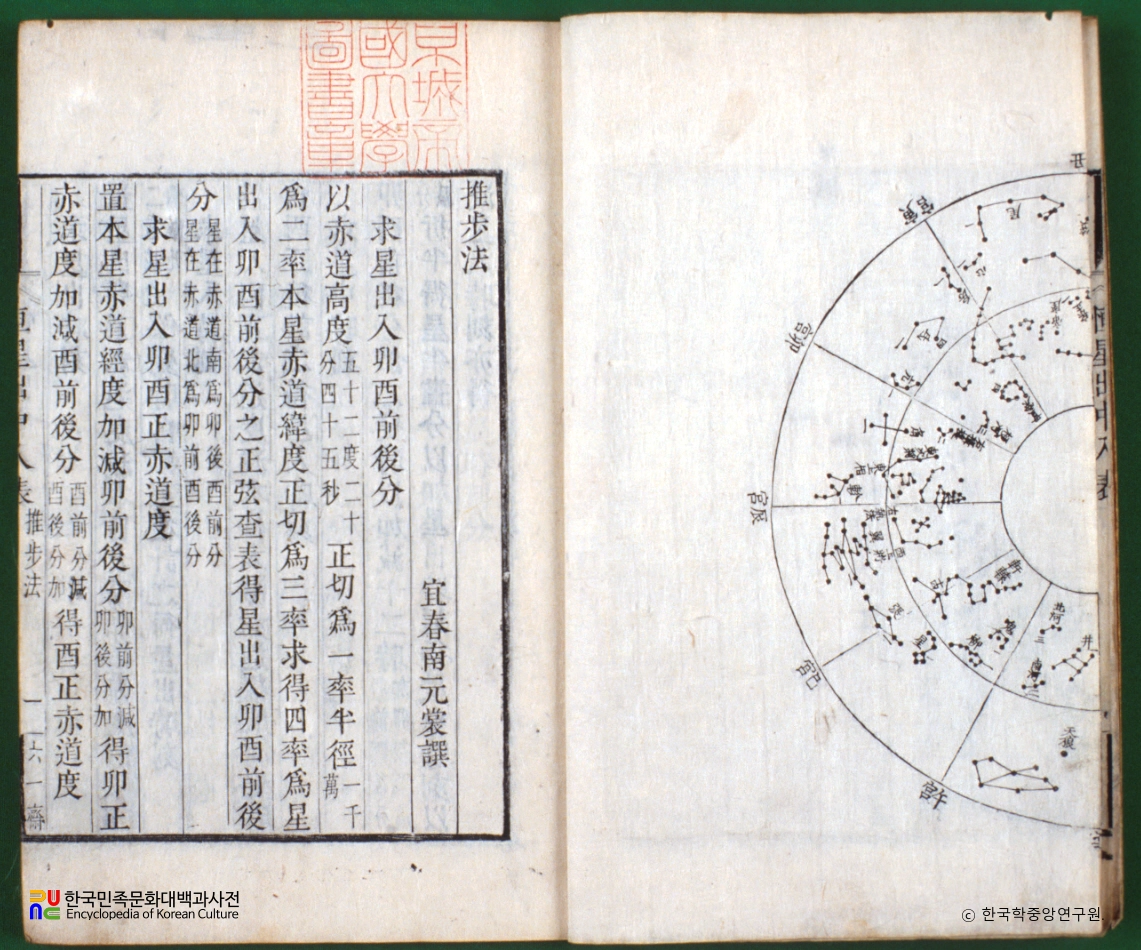 恒星出中入表
尾
寅宮
氐
卯宮
亢
角
軫
辰宮
翼
張
巳宮
星
柳
鬼
軒轅
北河
三
井
南河
天狼
午宮
京城帝
國大學
圖書章
推步法
宜春南元裳譔
求星出入卯酉前後分
以赤道高度五十二度二十分四十五秒正切爲一率半徑一千萬
爲二率本星赤道緯度正切爲三率求得四率爲星
出入卯酉前後分之正弦查表得星出入卯酉前後
分星在赤道南爲卯後酉前分星在赤道北爲卯前酉後分
求星出入卯酉正赤道度
置本星赤道經度加減卯前後分卯前分減卯後分加得卯正
赤道度加減酉前後分酉前分減酉後分加得酉正赤道度
恒星出中入表 推步法 一 六一齋
한국민족문화대백과사전
Encyclopedia of Korean Culture
ⓒ 한국학중앙연구원